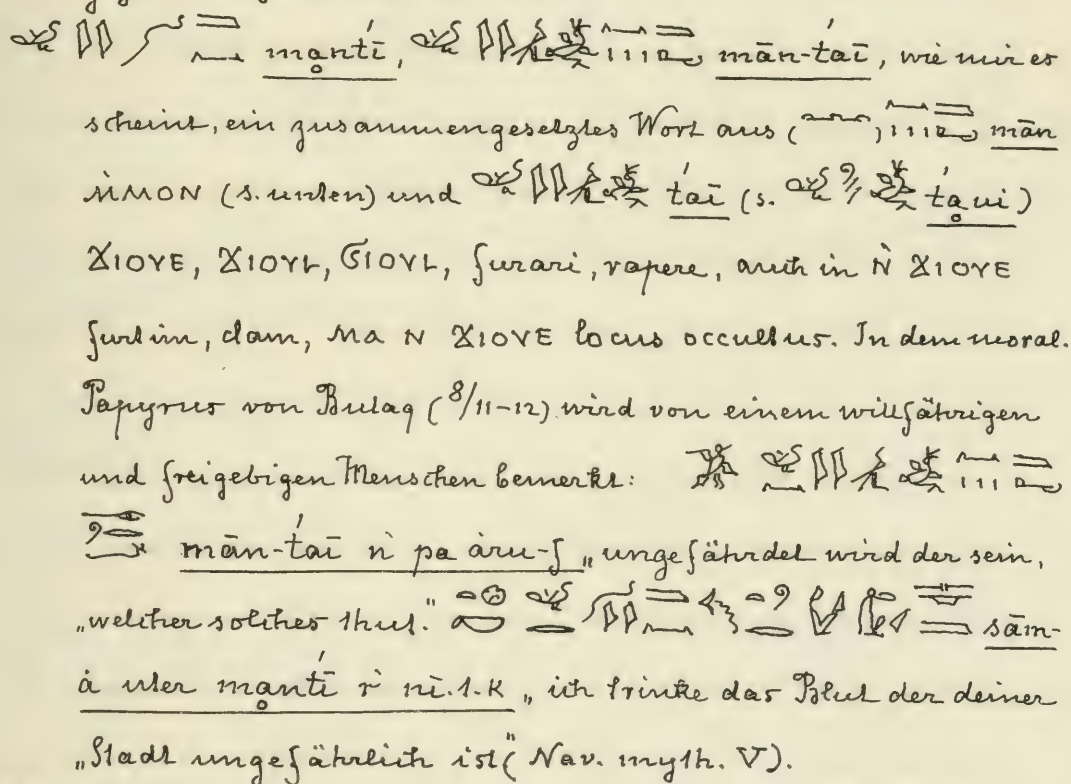 manṭī, mān-ṭaī, wie mir es
scheint, ein zusammengesetztes Wort aus (, mān
ⲙ̀ⲙⲟⲛ (s. unten) und ṭaī (s. ṭaui)
ϪⲓⲟⲩⲈ, Ϫⲓⲟⲩⲓ, ϭⲓⲟⲩⲓ, furari, rapere, auch in ⲛ̀ Ϫⲓⲟⲩⲉ
furtim, clam, ⲙⲁ ⲛ Ϫⲓⲟⲩⲉ locus occultus. In dem moral.
Papyrus von Bulaq (8/11-12) wird von einem willfährigen
und freigebigen Menschen bemerkt:
mān-ṭaī ǹ pa àru-f „ungefährdet wird der sein,
„welcher solches thut." sām-
à uter manṭī r̀ nī.t.k „ich trinke das Blut der deiner
„Stadt ungefährlich ist" (Nav. myth. V).